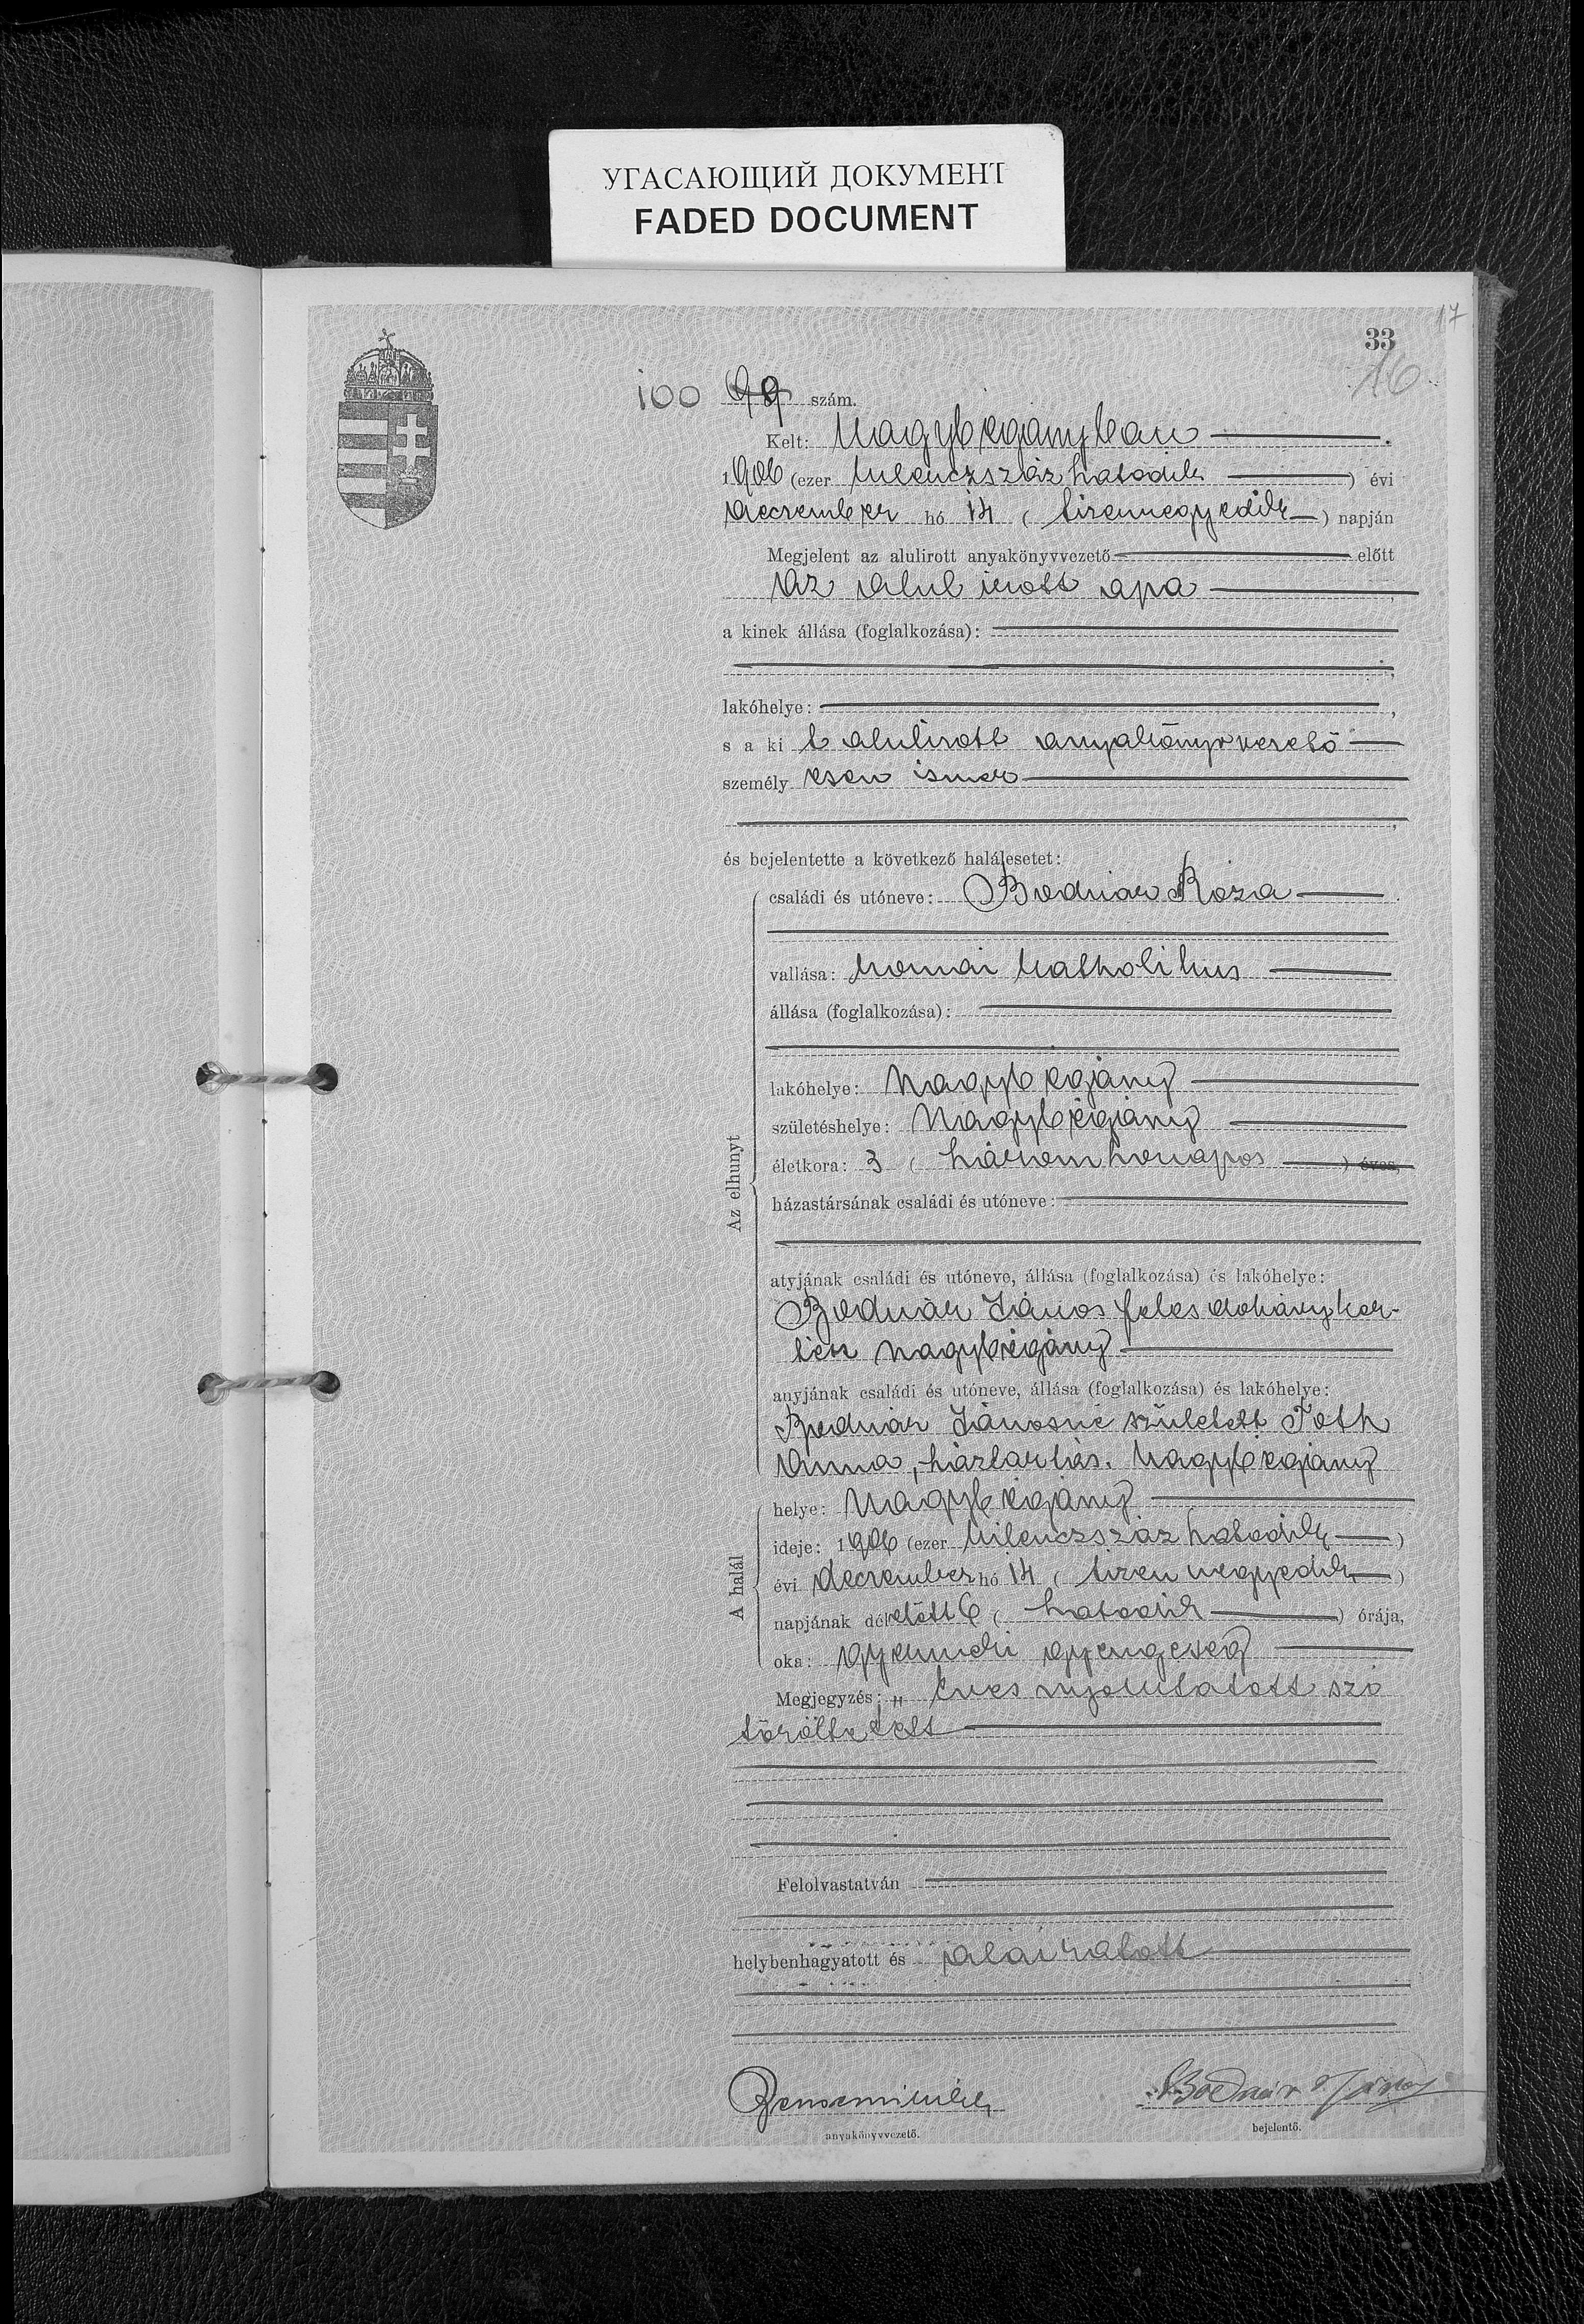 УГАСАЮЩИЙ ДОКУМЕНТ
FADED DOCUMENT
17
33
16
100 99 szám.
Kelt: Nagybégányban
1906 (ezer kilenczszáz hatodik) évi
deczember hó 14 (tizennegyedik) napján
Megjelent az alulirott anyakönyvvezető előtt
az alul irott apa
a kinek állása (foglalkozása):
lakóhelye:
s a ki t alulirott anyakönyvvezető
személy esen ismer
és bejelentette a következő halálesetet:
Az elhunyt
családi és utóneve: Bodnár Róza
vallása: római katholikus
állása (foglalkozása):
lakóhelye: Nagybégány
születéshelye: Nagybégány
életkora: 3 (három hónapos) éves,
házastársának családi és utóneve:
atyjának családi és utóneve, állása (foglalkozása) és lakóhelye:
Bodnár János feles dohányker-
tész nagybégány
anyjának családi és utóneve, állása (foglalkozása) és lakóhelye:
Bodnár Jánosné született Toth
Anna, háztartás. Nagybégány
A halál
helye: Nagybégány
ideje: 1906 (ezer kilenczszáz hatodik)
évi deczember hó 14 (tizennegyedik)
napjának délelőtt 6 (hatodik) órája,
oka: gyenge­ség
Megjegyzés: „éves nyomtatott szó
töröltetett
Felolvastatván
helybenhagyatott és aláiratott
anyakönyvvezető.
Bodnár János
bejelentő.